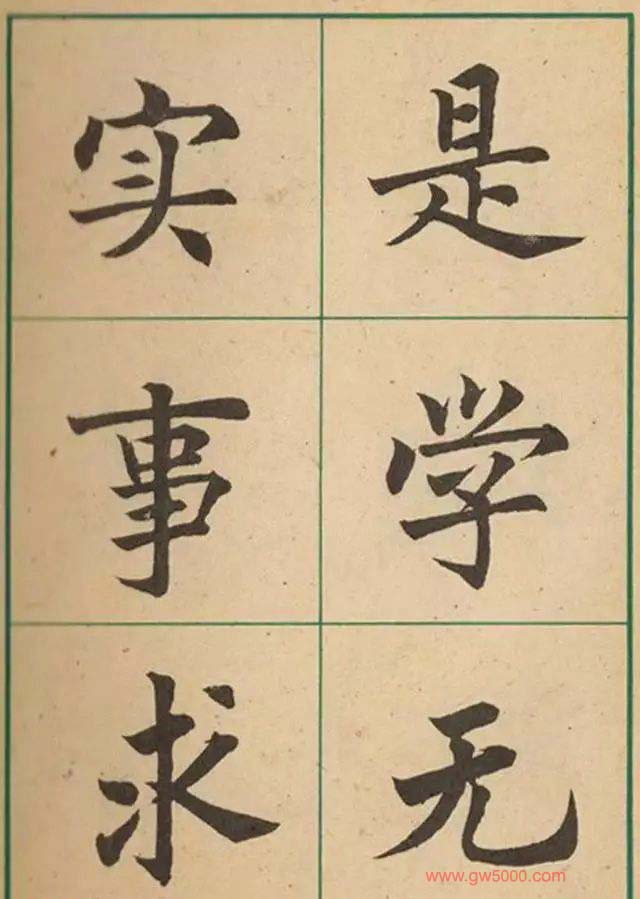 实事求
是学无
www.gw5000.com